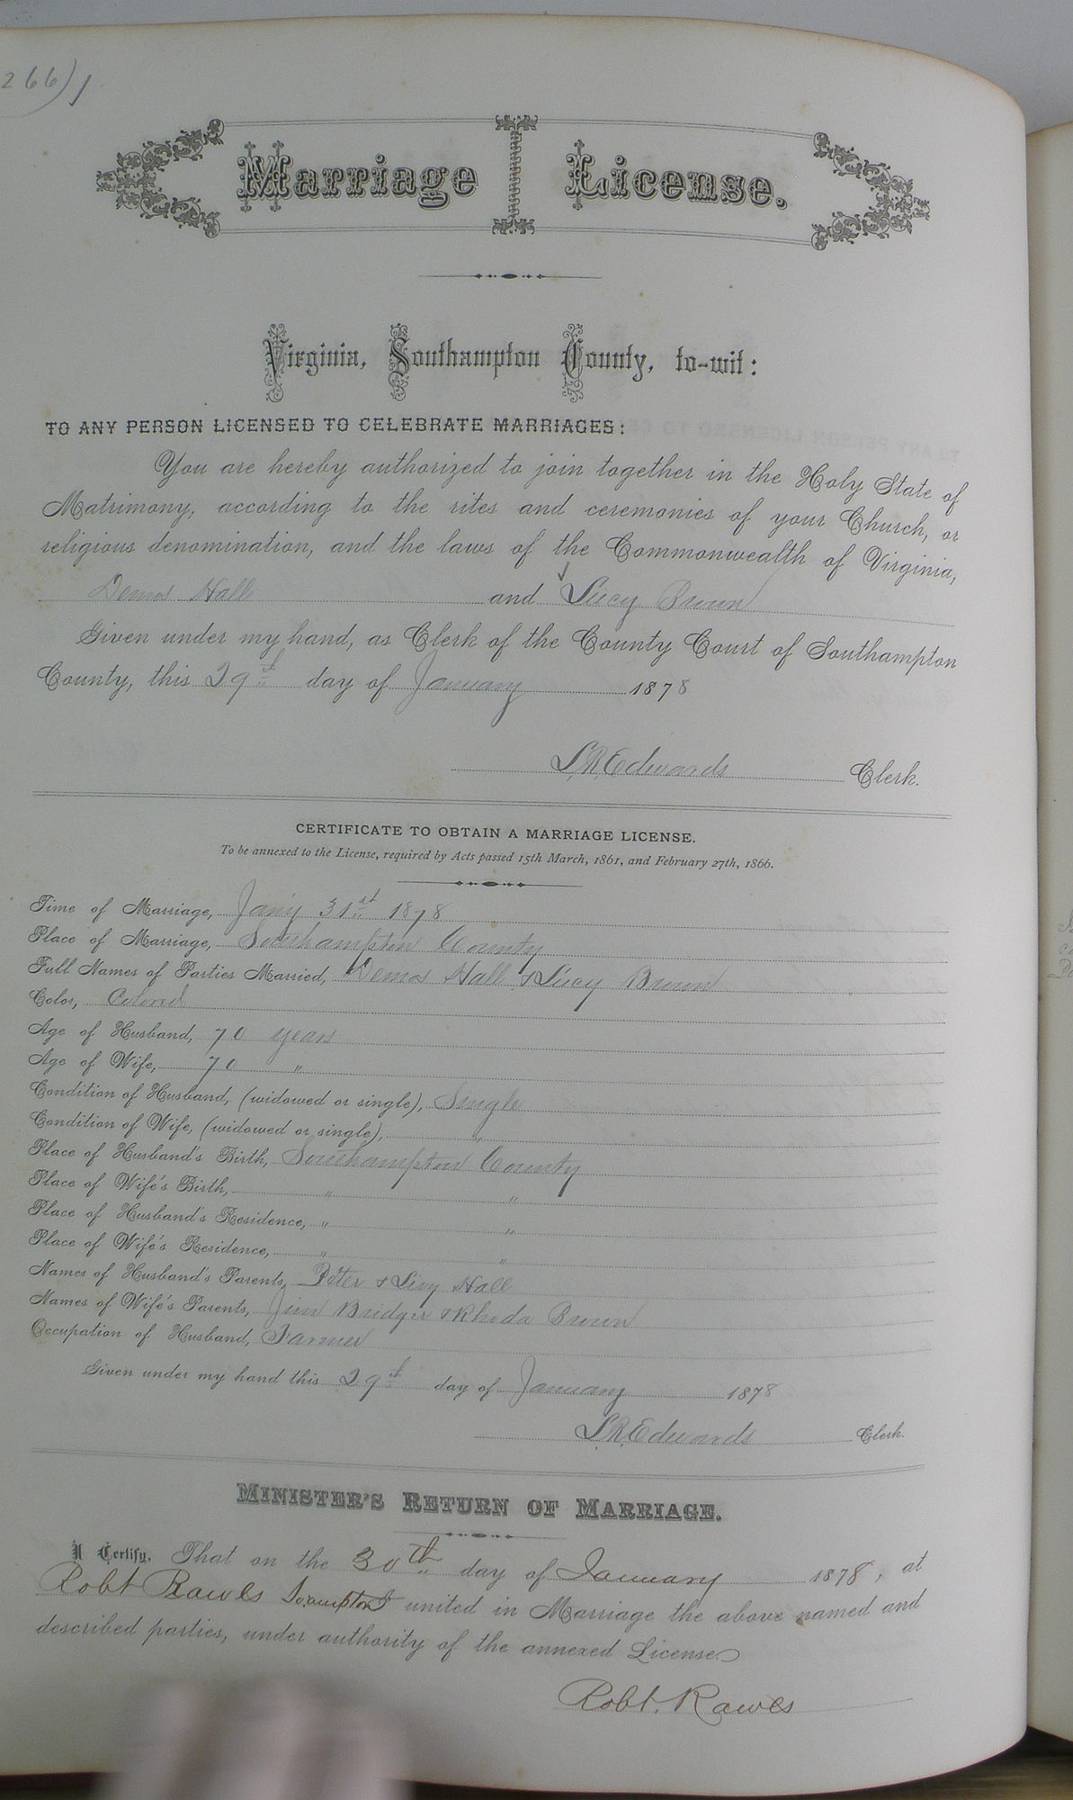 266)
Marriage License.
Virginia, Southampton County, to-wit:
TO ANY PERSON LICENSED TO CELEBRATE MARRIAGES:
You are hereby authorized to join together in the Holy State of
Matrimony, according to the rites and ceremonies of your Church, or
religious denomination, and the laws of the Commonwealth of Virginia,
Demos Hall and Lucy Brown
Given under my hand, as Clerk of the County Court of Southampton
County, this 29th day of January 1878
L.R. Edwards Clerk.
CERTIFICATE TO OBTAIN A MARRIAGE LICENSE.
To be annexed to the License, required by Acts passed 15th March, 1861, and February 27th, 1866.
Time of Marriage, Jany 31st 1878
Place of Marriage, Southampton County
Full Names of Parties Married, Demos Hall & Lucy Brown
Color, Colored
Age of Husband, 70 years
Age of Wife, 70 "
Condition of Husband, (widowed or single), Single
Condition of Wife, (widowed or single), "
Place of Husband's Birth, Southampton County
Place of Wife's Birth, " "
Place of Husband's Residence, " "
Place of Wife's Residence, " "
Names of Husband's Parents, Peter & Lucy Hall
Names of Wife's Parents, Jim Bridger & Rhoda Brown
Occupation of Husband, Farmer
Given under my hand this 29th day of January 1878
L.R. Edwards Clerk.
MINISTER'S RETURN OF MARRIAGE.
I Certify, That on the 30th day of January 1878, at
Robt Rawes I united in Marriage the above named and
described parties, under authority of the annexed License.
Robt. Rawes